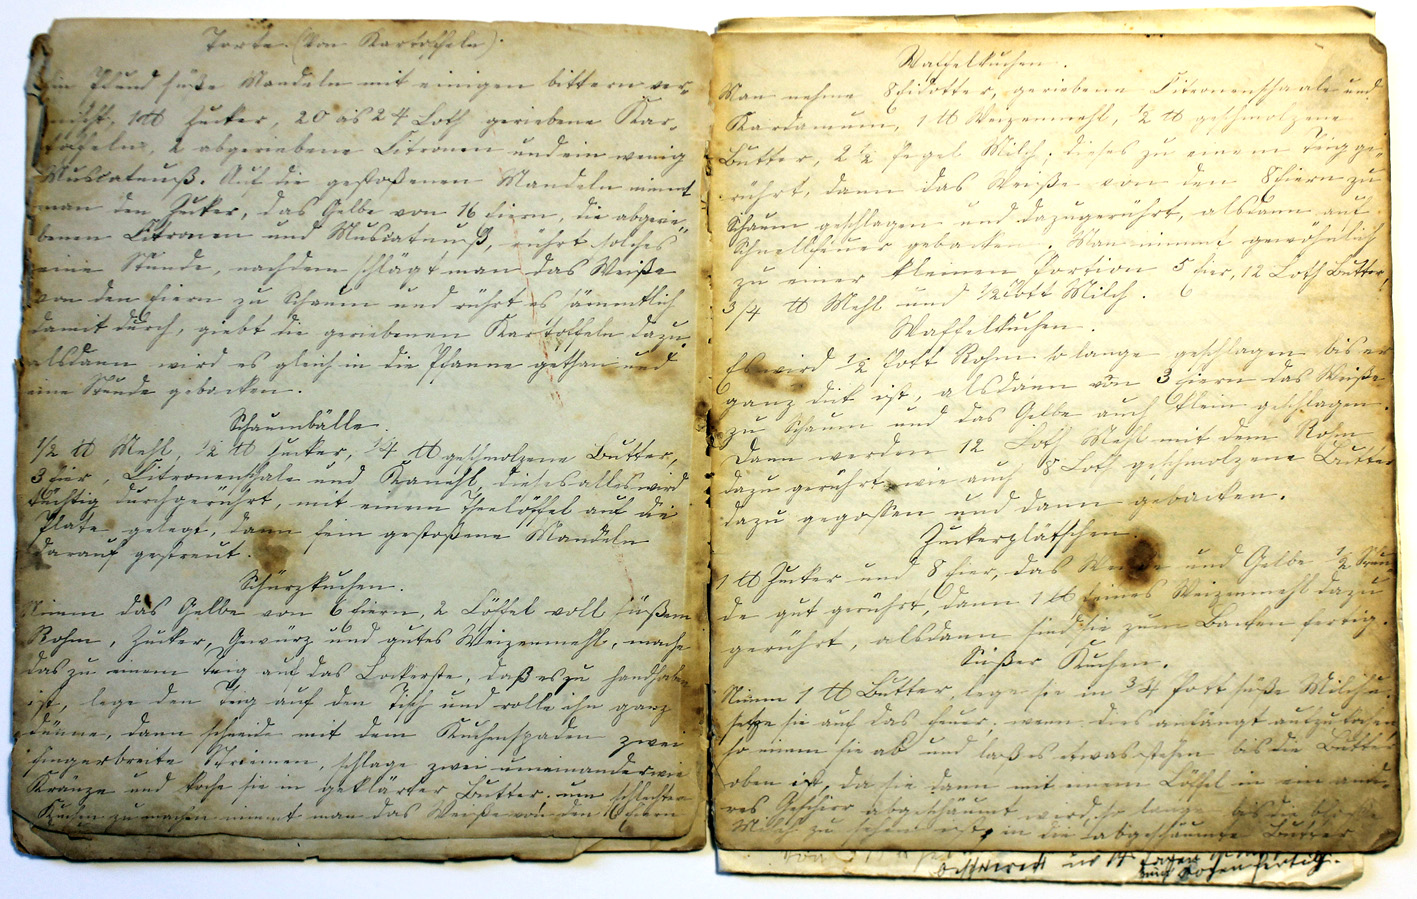 Torte. (Von Kartoffeln).
Ein Pfund süße Mandeln mit einigen bittern ver-
mischt, 1 ℔ Zucker, 20 as 24 Loth geriebene Kar-
toffeln, 2 abgeriebene Citronen und ein wenig
Muscatnuß. Auf die gestoßenen Mandeln nimmt
man den Zucker, das Gelbe von 16 Eiern, die abgerie-
benen Citronen und Muscatnuß, rührt solches
eine Stunde, nachdem schlägt man das Weiße
von den Eiern zu Schaum und rührt es sämmtlich
damit durch, giebt die geriebenen Kartoffeln dazu,
alsdann wird es gleich in die Pfanne gethan und
eine Stunde gebacken.
Schaumbälle.
1/2 ℔ Mehl, 1/2 ℔ Zucker, 1/4 ℔ geschmolzene Butter,
3 Eier, Citronenschale und Kanehl, dieses alles wird
tüchtig durchgerührt, mit einem Theelöffel auf die
Plate gelegt, dann fein gestoßene Mandeln
darauf gestreut.
Schürzkuchen.
Nimm das Gelbe von 6 Eiern, 2 Löffel voll süßem
Rohm, Zucker, Gewürz und gutes Weizenmehl, mache
das zu einem Teig auf das Lockerste, daß es zu handhaben
ist, lege den Teig auf den Tisch und rolle ihn ganz
dünne, dann schneide mit dem Kuchenspaden zwei
fingerbreite Striemen, schlage zwei umeinander wie
Kränze und koche sie in geklärter Butter. um schlechten
Kuchen zu machen nimmt man das Weiße von den 6 Eiern
Waffelkuchen.
Man nehme 8 Eidotter, geriebene Citronenschaale und
Kardamum, 1 ℔ Weizenmehl, 1/2 ℔ geschmolzene
Butter, 2 1/2 Pegel Milch; dieses zu einem Teig ge-
rührt, dann das Weiße von den 8 Eiern zu
Schaum geschlagen und dazugerührt, alsdann auf
Schnellfeuer gebacken. Man nimmt gewöhnlich
zu einer kleinen Portion 5 Eier, 12 Loth Butter,
3/4 ℔ Mehl und 1/2 Pott Milch.
Waffelkuchen.
Es wird 1/2 Pott Rohm so lange geschlagen bis er
ganz dick ist, alsdann von 3 Eiern das Weiße
zu Schaum und das Gelbe auch klein geschlagen.
Dann werden 12 Loth Mehl mit dem Rohm
dazu gerührt, wie auch 8 Loth geschmolzene Butter
dazu gegossen und dann gebacken.
Zuckerplätschen.
1 ℔ Zucker und 8 Eier, das Weiße und Gelbe 1/2 Stun-
de gut gerührt, dann 1 ℔ feines Weizenmehl dazu
gerührt, alsdann sind sie zum Backen fertig.
Süßer Kuchen.
Nimm 1 ℔ Butter, lege sie in 3/4 Pott süße Milch u.
setze sie auf das Feuer. wenn dies anfängt aufzukochen
so nimm sie ab und laß es etwas stehen bis die Butter
oben ist, da sie dann mit einem Löffel in ein ande-
res Geschirr abgeschäumt wird, so lange bis die
Milch zu sehen ist, in die abgeschäumte Butter